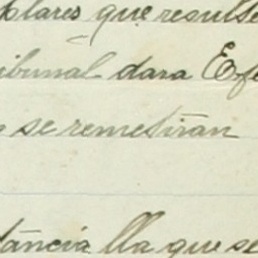 plares que resulte
ibunal dara Efe
se remetiran
tancia lla que se